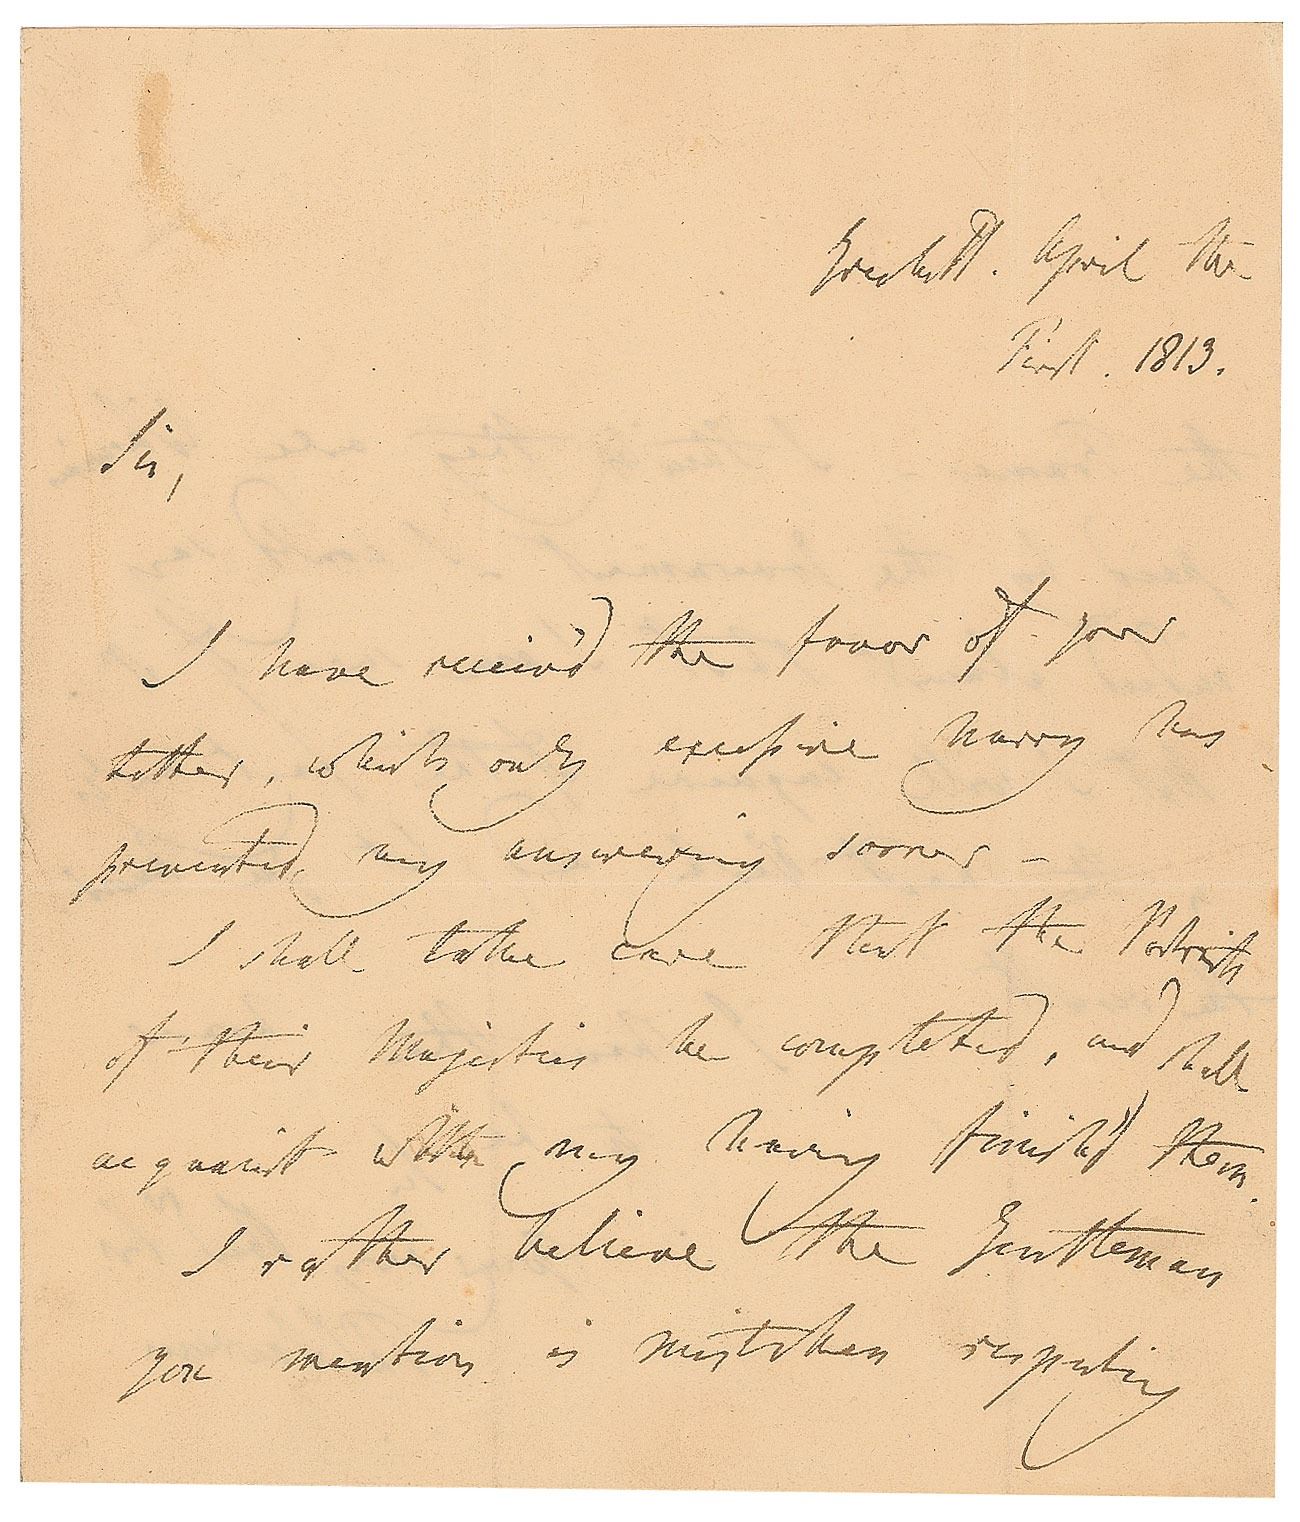 April the
First. 1813.
Sir,
I have receiv'd the favor of your
letter, which only excessive hurry has
prevented my answering sooner –
I shall take care that the Portraits
of their Majesties be completed, and shall
acquaint my having finish'd them.
I rather believe the Gentleman
you mention is mistaken respecting